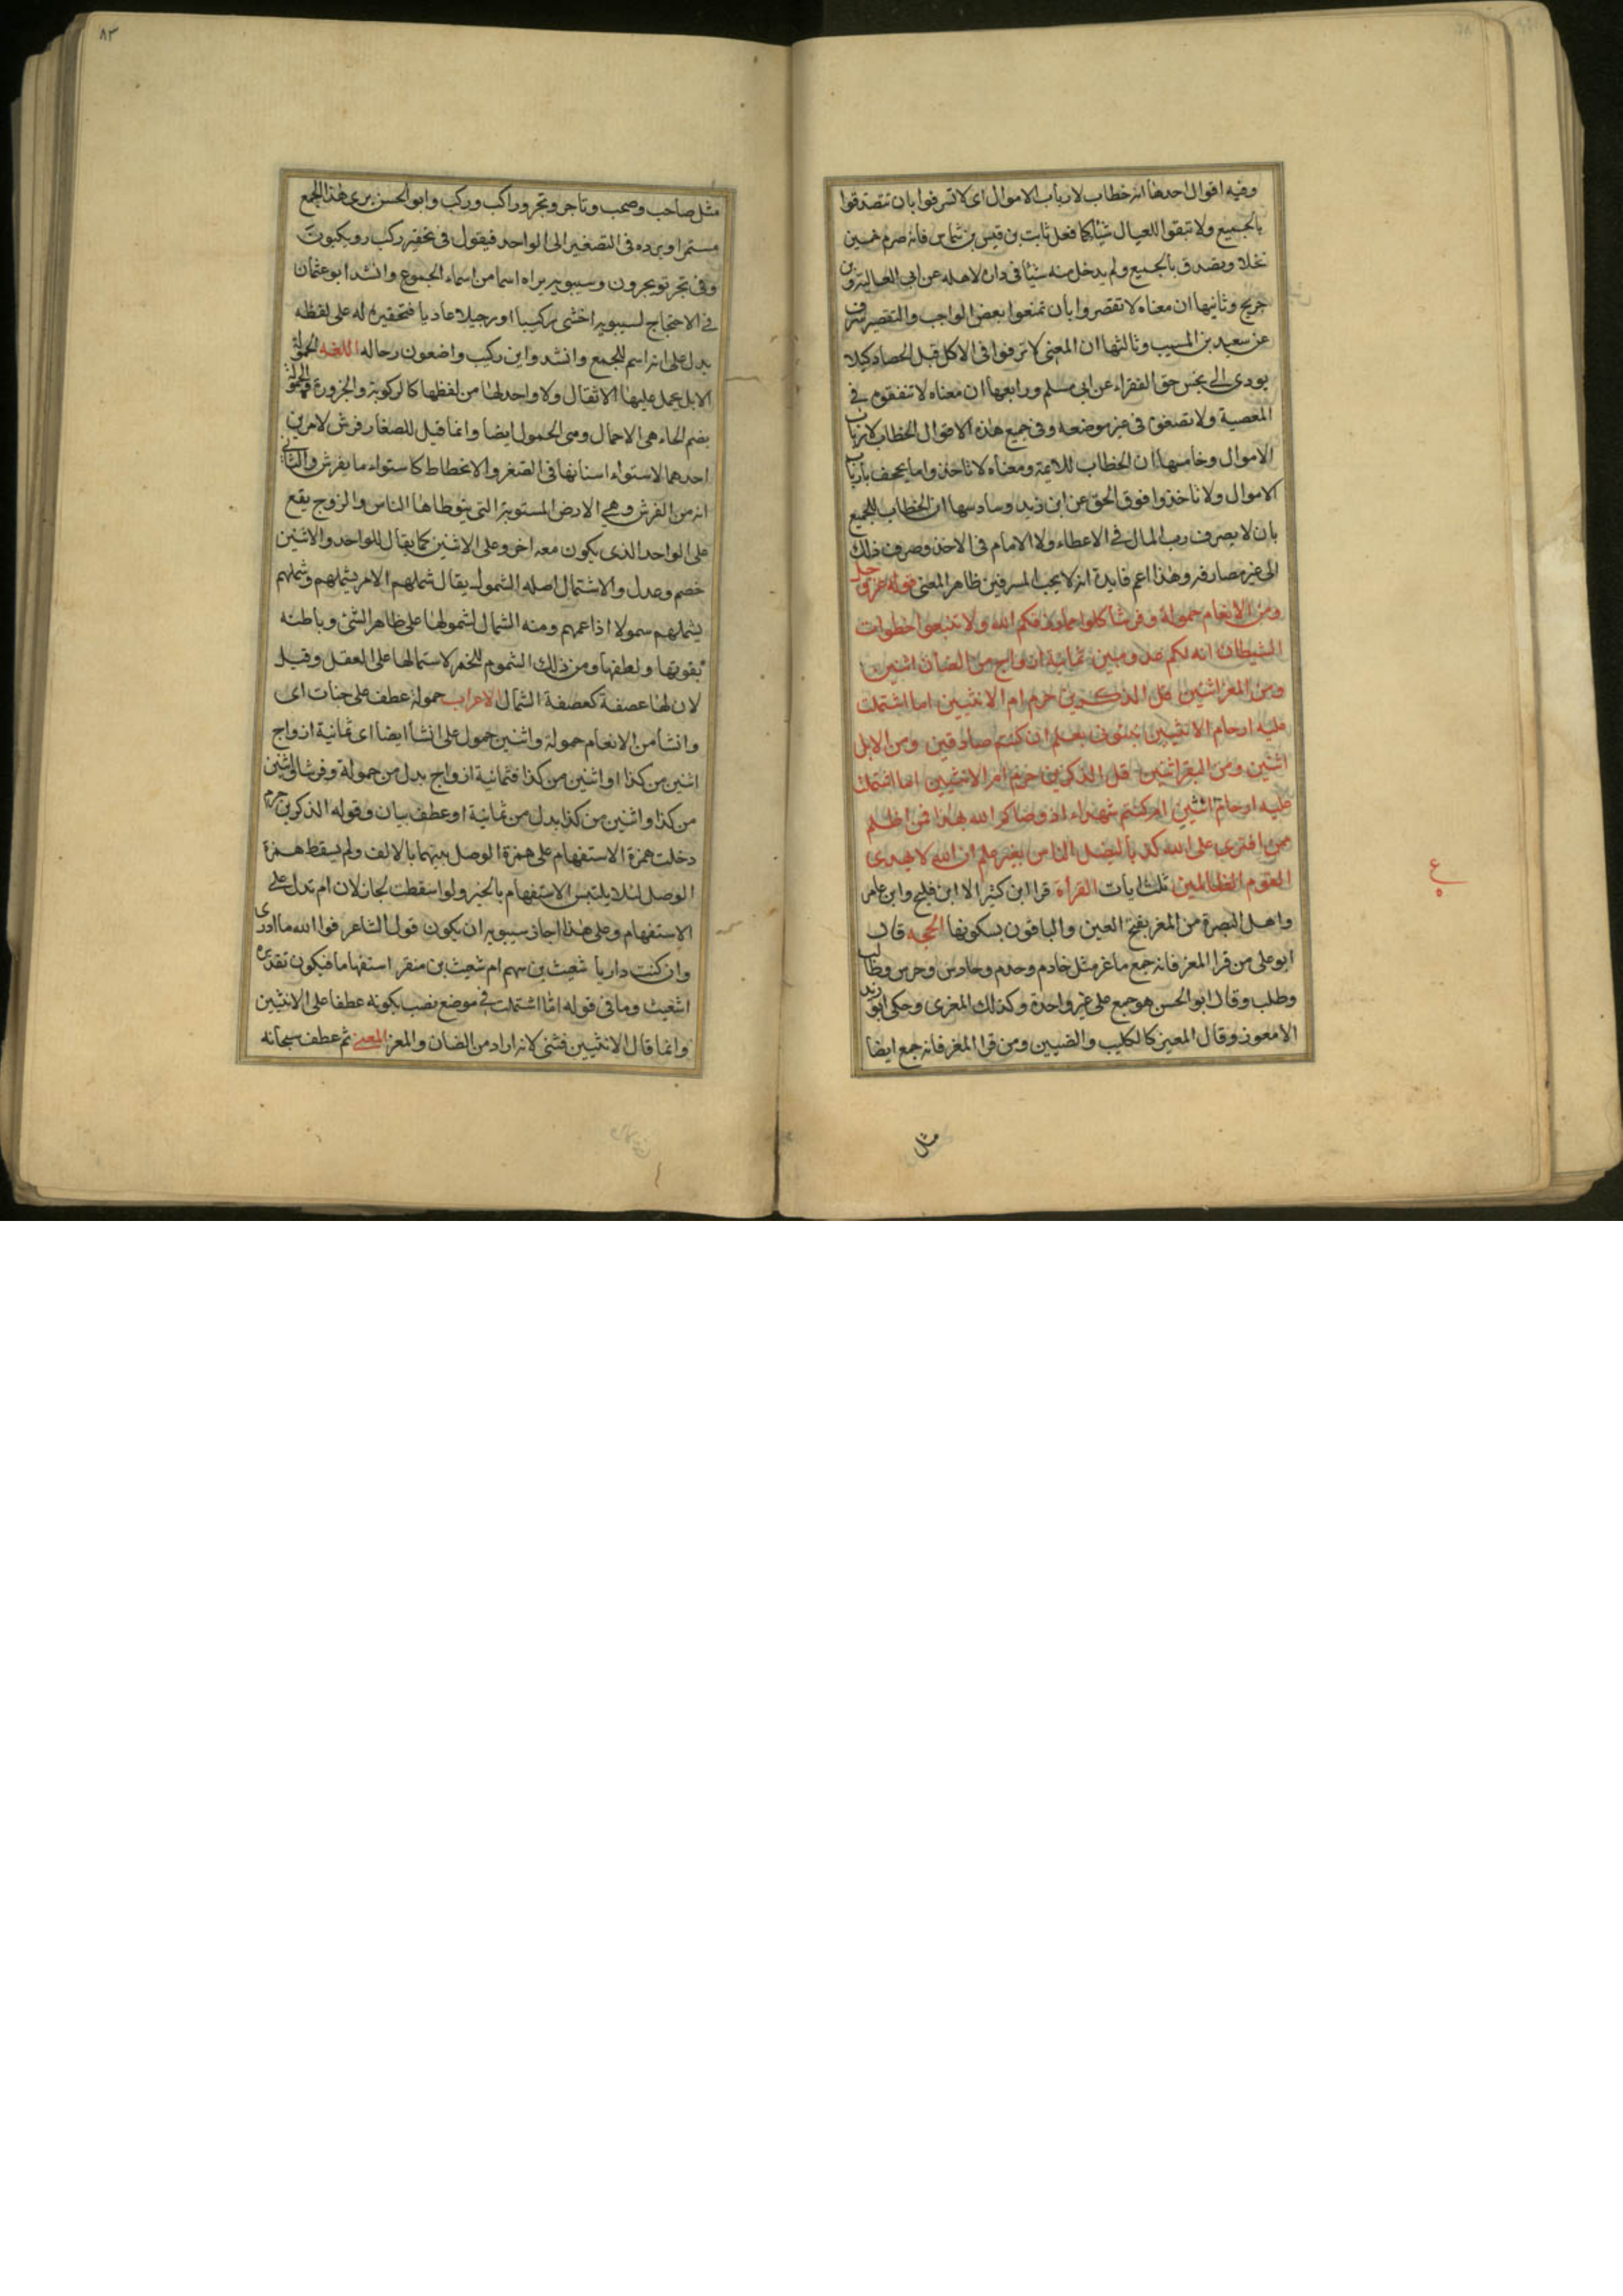 وفيه اقوال احدها انه خطاب لارباب الاموال اى لا تسرفوا بان تتصدقوا
بالجميع ولا تبقوا للعيال شيئا كما فعل ثابت بن قيس بن شماس فانه صرم خمسين
نخلا وتصدق بالجميع ولم يدخل منه شيئا فى داره لاهله عن ابى العالية وابن
جريج وثانيها ان معناه لا تقصروا بان تمنعوا بعض الواجب والتقصير سرف
عن سعيد بن المسيب وثالثها ان المعنى لا تسرفوا فى الاكل قبل الحصاد كيلا
يودى الى بخس حق الفقراء عن ابى مسلم ورابعها ان معناه لا تنفقوه فى
المعصية ولا تضعوه فى غير موضعه وفى جميع هذه الاقوال الخطاب لارباب
الاموال وخامسها ان الخطاب للائمة ومعناه لا تاخذوا ما يجحف بارباب
الاموال ولا تاخذوا فوق الحق عن ابن زيد وسادسها ان الخطاب للجميع
بان لا يصرف رب المال فى الاعطاء ولا الامام فى الاخذ وصرف ذلك
الى غير مصارفه وهذا اعم فايدة انه لا يحب المسرفين ظاهر المعنى قوله عز وجل
ومن الانعام حمولة وفرشا كلوا مما رزقكم الله ولا تتبعوا خطوات
الشيطان انه لكم عدو مبين ثمانية ازواج من الضان اثنين
ومن المعز اثنين قل الذكرين حرم ام الانثيين اما اشتملت
عليه ارحام الانثيين نبئونى بعلم ان كنتم صادقين ومن الابل
اثنين ومن البقر اثنين قل الذكرين حرم ام الانثيين اما اشتملت
عليه ارحام اثنيين ام كنتم شهداء اذ وصاكم الله بهذا فمن اظلم
ممن افترى على الله كذبا ليضل الناس بغير علم ان الله لا يهدى
القوم الظالمين ثلث ايات القراة قرا ابن كثير الا ابن فليح وابن عامر
واهل البصرة من المعز بفتح العين والباقون بسكونها الحجة قال
ابو على من قرا المعز فانه جمع ماعز مثل خادم وخدم وحارس وحرس وطالب
وطلب وقال ابو الحسن هو جمع على غير واحدة وكذلك المعزى وحكى ابو زيد
الامعوز وقال المعين كالكليب والضيين ومن قرا المعز فانه جمع ايضا
مثل
ع
٨٣
مثل صاحب وصحب وتاجر وتجر وراكب وركب وابو الحسن يرى هذا الجمع
مستمرا ويرده فى التصغير الى الواحد فيقول فى تحقير ركب رويكبون
وفى تجر تويجرون وسيبويه يراه اسما من اسماء الجموع وانشد ابو عثمان
فى الاحتجاج لسيبويه اخشى ركيبا او رجيلا عاديا فتحقيره له على لفظه
يدل على انه اسم للجمع وانشد واين ركيب واضعون رحاله اللغة الحمولة
الابل يحمل عليها الاثقال ولا واحد لها من لفظها كالركوبة والجزورة والحمولة
بضم الحاء هى الاحمال وهى الحمول ايضا وانما قيل للصغار فرش لامرين
احدهما لاستواء اسنانها فى الصغر والانحطاط كاستواء ما يفرش والثانى
انه من الفرش وهى الارض المستوية التى يتوطاها الناس والزوج يقع
على الواحد الذى يكون معه اخر وعلى الاثنين كما يقال للواحد والاثنين
خصم وعدل والاشتمال اصله الشمول يقال شملهم الامر يشملهم وشملهم
يشملهم سمولا اذا عمهم ومنه الشمال لشمولها على ظاهر الشئ وباطنه
بقوتها ولطفها ومن ذلك الشموم للخمر لاستمالها على العقل وقيل
لان لها عصفة كعصفة الشمال الاعراب حمولة عطف على جنات اى
وانشا من الانعام حمولة واثنين حمول على انشا ايضا اى ثمانية ازواج
اثنين من كذا او اثنين من كذا فثمانية ازواج بدل من حمولة وفرشا واثنين
من كذا واثنين من كذا بدل من ثمانية او عطف بيان وقوله الذكرين حرم
دخلت همزة الاستفهام على همزة الوصل بينهما بالالف ولم يسقط همزة
الوصل لئلا يلتبس الاستفهام بالخبر ولو اسقطت لجاز لان ام تدل على
الاستفهام وعلى هذا اجاز سيبويه ان يكون قول الشاعر فوا الله ما ادرى
وان كنت داريا شعيث بن سهم ام شعيث بن منقر استفهاما فيكون تقديره
اشعيث وما فى قوله اما اشتملت فى موضع نصب بكونه عطفا على الانثيين
وانما قال الانثيين فثنى لانه اراد من الضان والمعز المعنى ثم عطف سبحانه